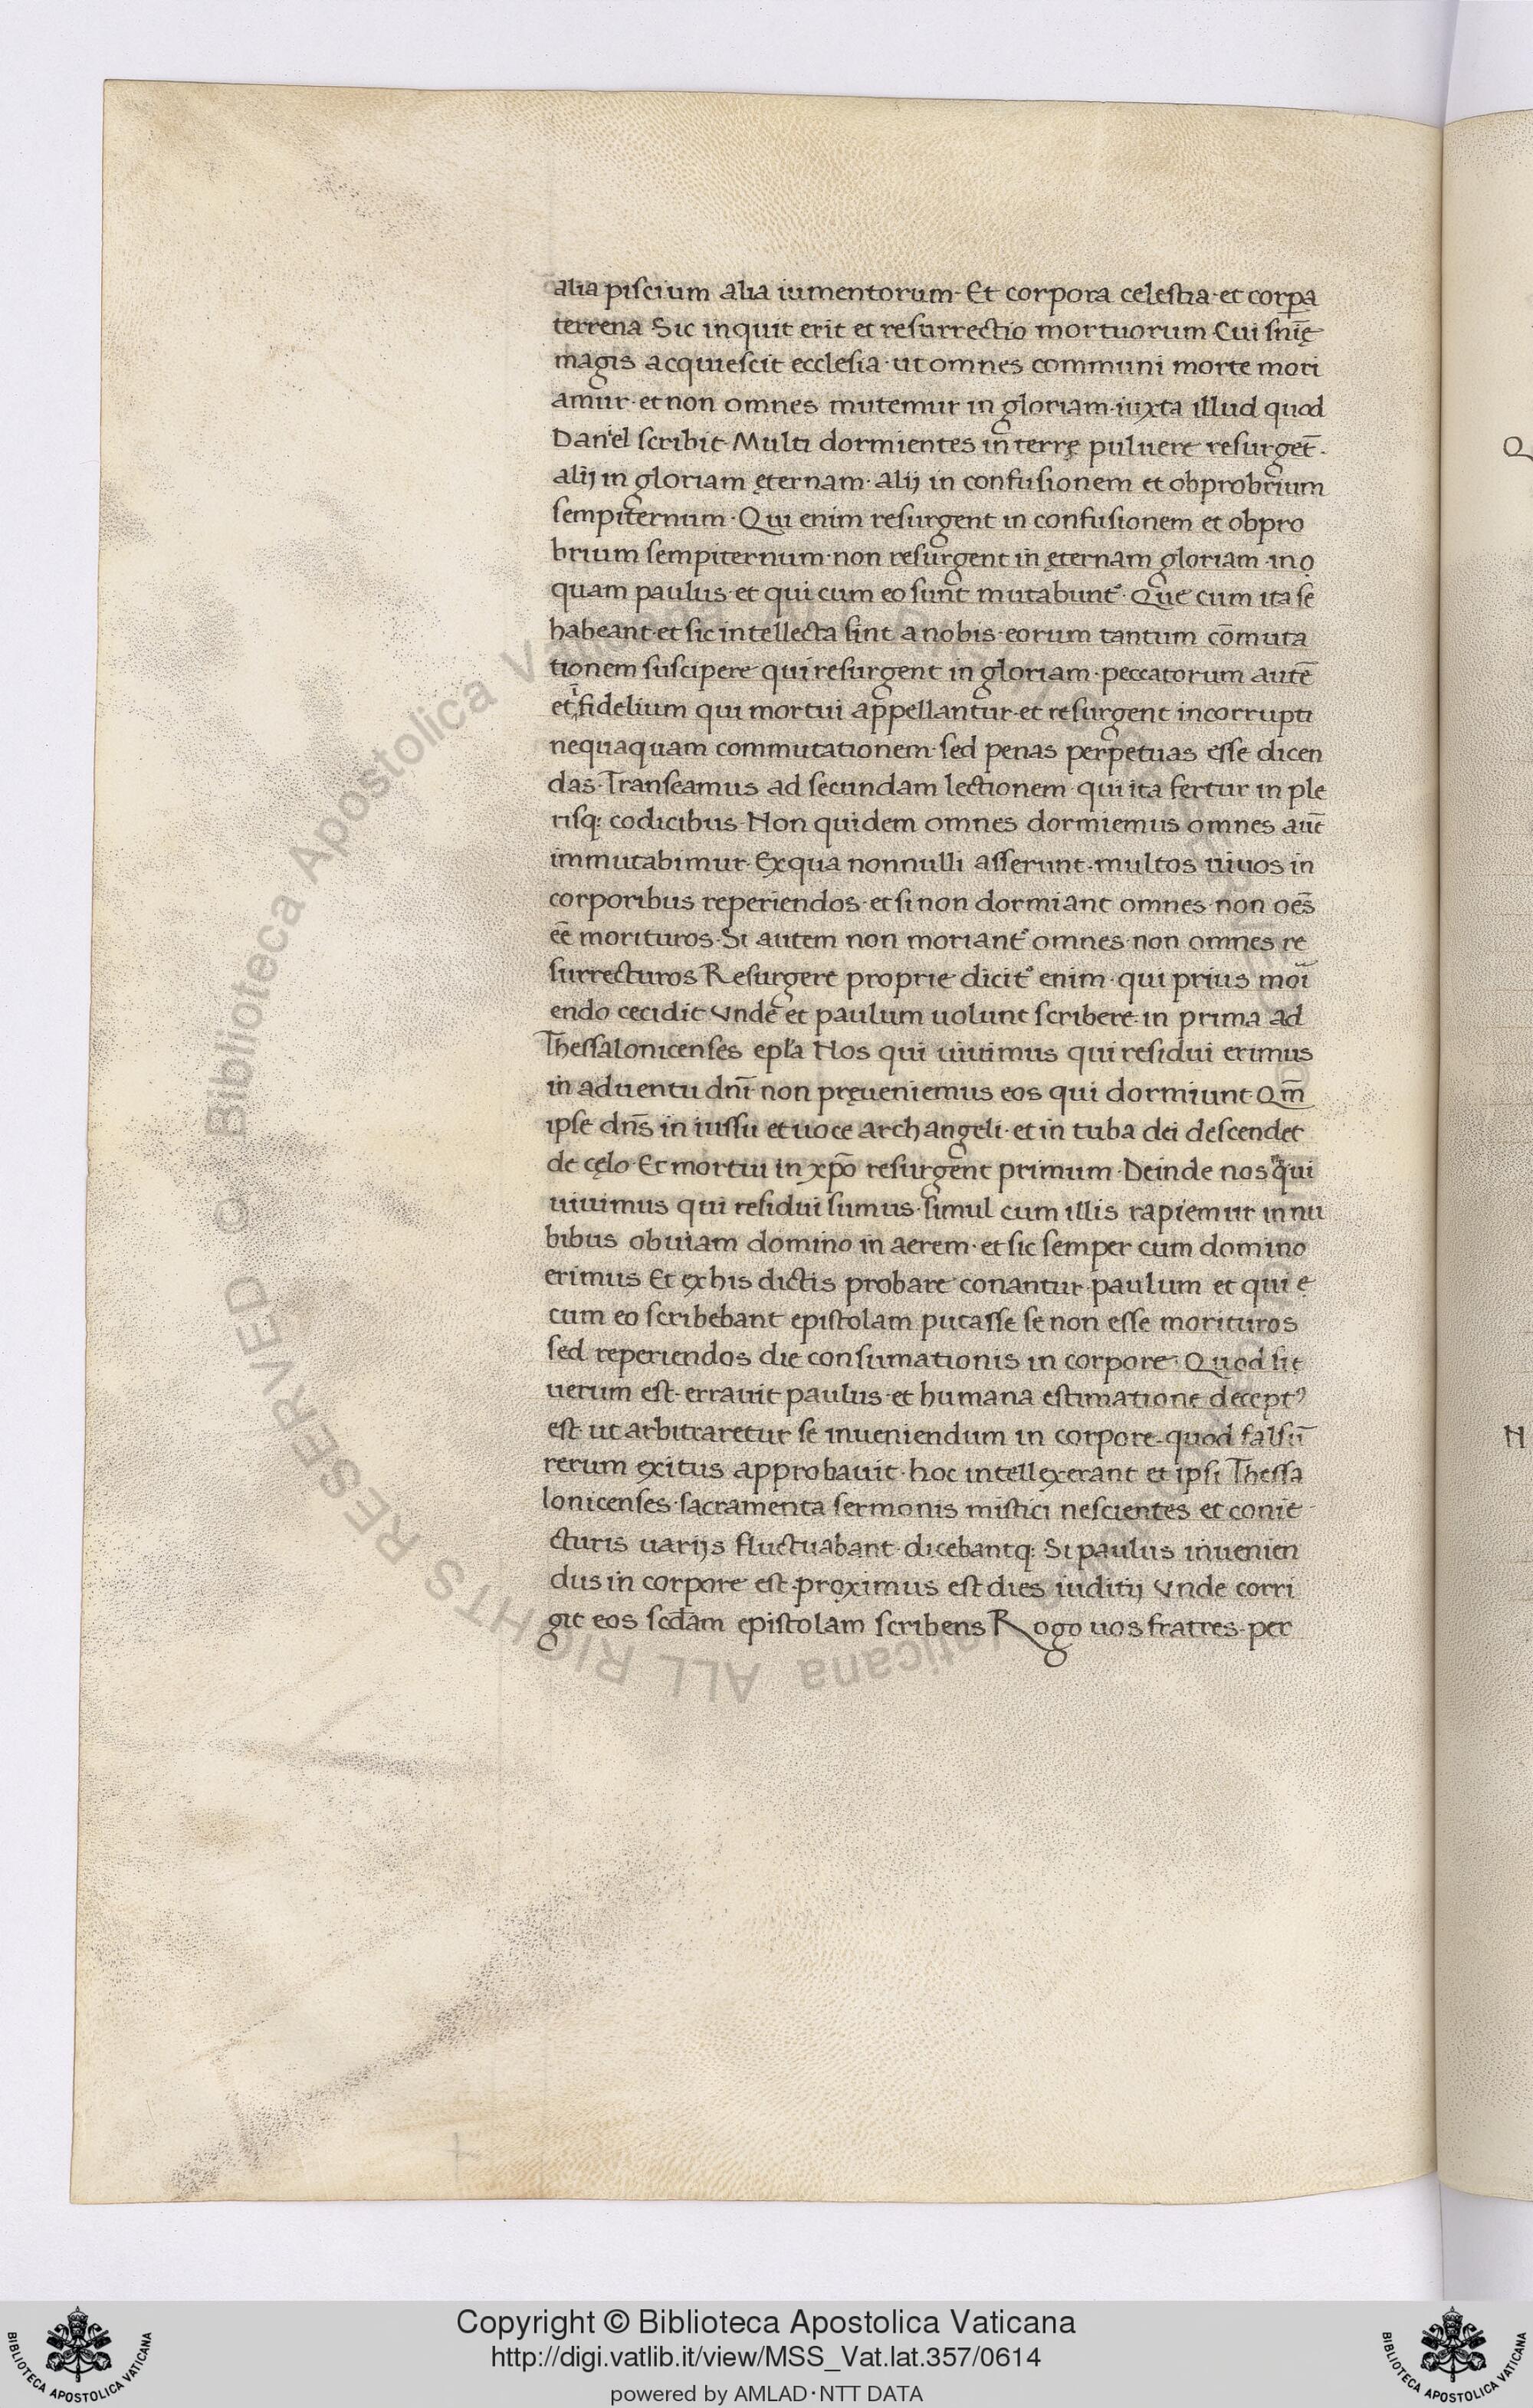 alia piscium alia iumentorum· Et corpora celestia·et corꝑa
terrena Sic inquit erit et resurrectio mortuorum Cui sn̄ię
magis acquiescit ecclesia·ut omnes communi morte mori
amur·et non omnes mutemur in gloriam·iuxta illud quod
Daniel scribit·Multi dormientes in terrę puluere resurget̄·
alij in gloriam ęternam·alij in confusionem et obprobrium
sempiternum·Qui enim resurgent in confusionem et obpro
brium sempiternum·non resurgent in ęternam gloriam·in
quam paulus·et qui cum eo sunt mutabunt᷑·Que cum ita se
habeant·et sic intellecta sint a nobis·eorum tantum cōmuta
tionem suscipere qui resurgent in gloriam·peccatorum autē
et infidelium qui mortui appellantur·et resurgent incorrupti
nequaquam commutationem·sed penas perpetuas esse dicen
das·Transeamus ad secundam lectionem·qui ita fertur in ple
risq: codicibus·Non quidem omnes dormiemus omnes aut̄
immutabimur·Ex qua nonnulli asserunt·multos uiuos in
corporibus reperiendos·et si non dormiant omnes·non oēs
eē morituros·Si autem non moriant᷑ omnes·non omnes re
surrecturos Resurgere proprie dicit᷑ enim·qui prius mori
endo cecidit Vnde et paulum uolunt scribere·in prima ad
Thessalonicenses epl̄a Nos qui uiuimus qui residui erimus
in aduentu dn̄i·non pręueniemus eos qui dormiunt·Qm̄
ipse dn̄s in iussu et uoce archangeli·et in tuba dei descendet
de cęlo·Et mortui in xp̄o resurgent primum·Deinde nos qui
uiuimus qui residui sumus·simul cum illis rapiemur in nu
bibus obuiam domino in aerem·et sic semper cum domino
erimus Et ex his dictis probare conantur·paulum et qui
cum eo scribebant epistolam putasse se non esse morituros
sed reperiendos die consumationis in corpore·Quod si
uerum est·errauit paulus·et humana estimatione decept᷒
est·ut arbitraretur se inueniendum in corpore·quod falsū
rerum exitus approbauit·hoc intellexerant et ipsi Thessa
lonicenses·sacramenta sermonis mistici nescientes et conie
cturis uarijs fluctuabant·dicebantq: Si paulus inuenien
dus in corpore est·proximus est dies iuditij Vnde corri
git eos scd̄am epistolam scribens Rogo uos fratres·per
Q
N
© Biblioteca Apostolica Vaticana ALL RIGHTS RESERVED
Copyright © Biblioteca Apostolica Vaticana
http://digi.vatlib.it/view/MSS_Vat.lat.357/0614
powered by AMLAD·NTT DATA
BIBLIOTECA APOSTOLICA VATICANA
BIBLIOTECA APOSTOLICA VATICANA